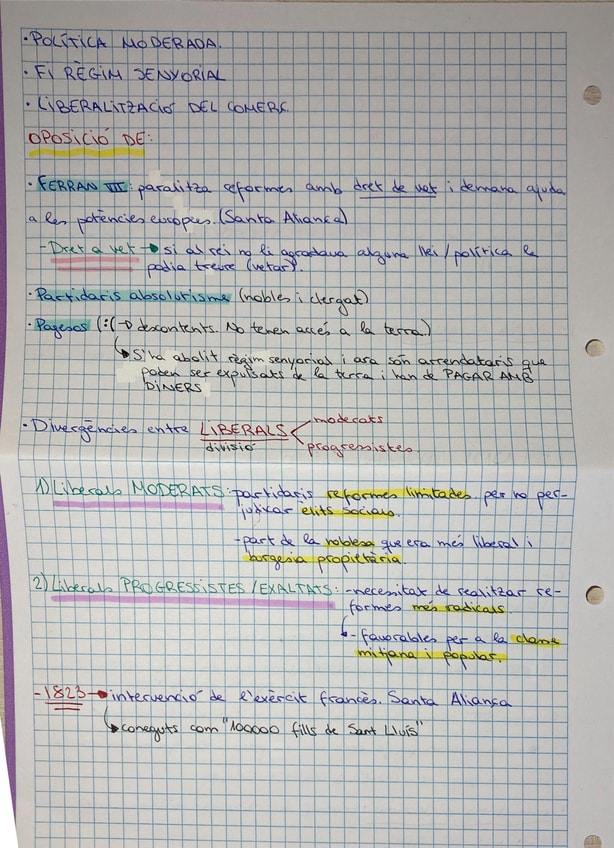 · POLÍTICA MODERADA.
· FI RÈGIM SENYORIAL
· LIBERALITZACIÓ DEL COMERÇ.
OPOSICIÓ DE:
· FERRAN VII: paralitza reformes amb dret de vet i demana ajuda
a les potències europees. (Santa Aliança)
- Dret a vet → si al rei no li agradava alguna llei/política la
podia treure (vetar).
· Partidaris absolutisme (nobles i clergat)
· Pagesos (:( → descontents. No tenen accés a la terra.)
↳ S'ha abolit règim senyorial i ara són arrendataris que
poden ser expulsats de la terra i han de PAGAR AMB
DINERS
· Divergències entre LIBERALS < moderats
divisió progressistes.
1) Liberals MODERATS: partidaris reformes limitades per no per-
judicar elits socials.
- part de la noblesa que era més liberal i
burgesia propietària.
2) Liberals PROGRESSISTES / EXALTATS: - necessitat de realitzar re-
formes més radicals.
↳ - favorables per a la classe
mitjana i popular.
- 1823 → intervenció de l'exèrcit francès. Santa Aliança
↳ coneguts com "100000 fills de Sant Lluís"